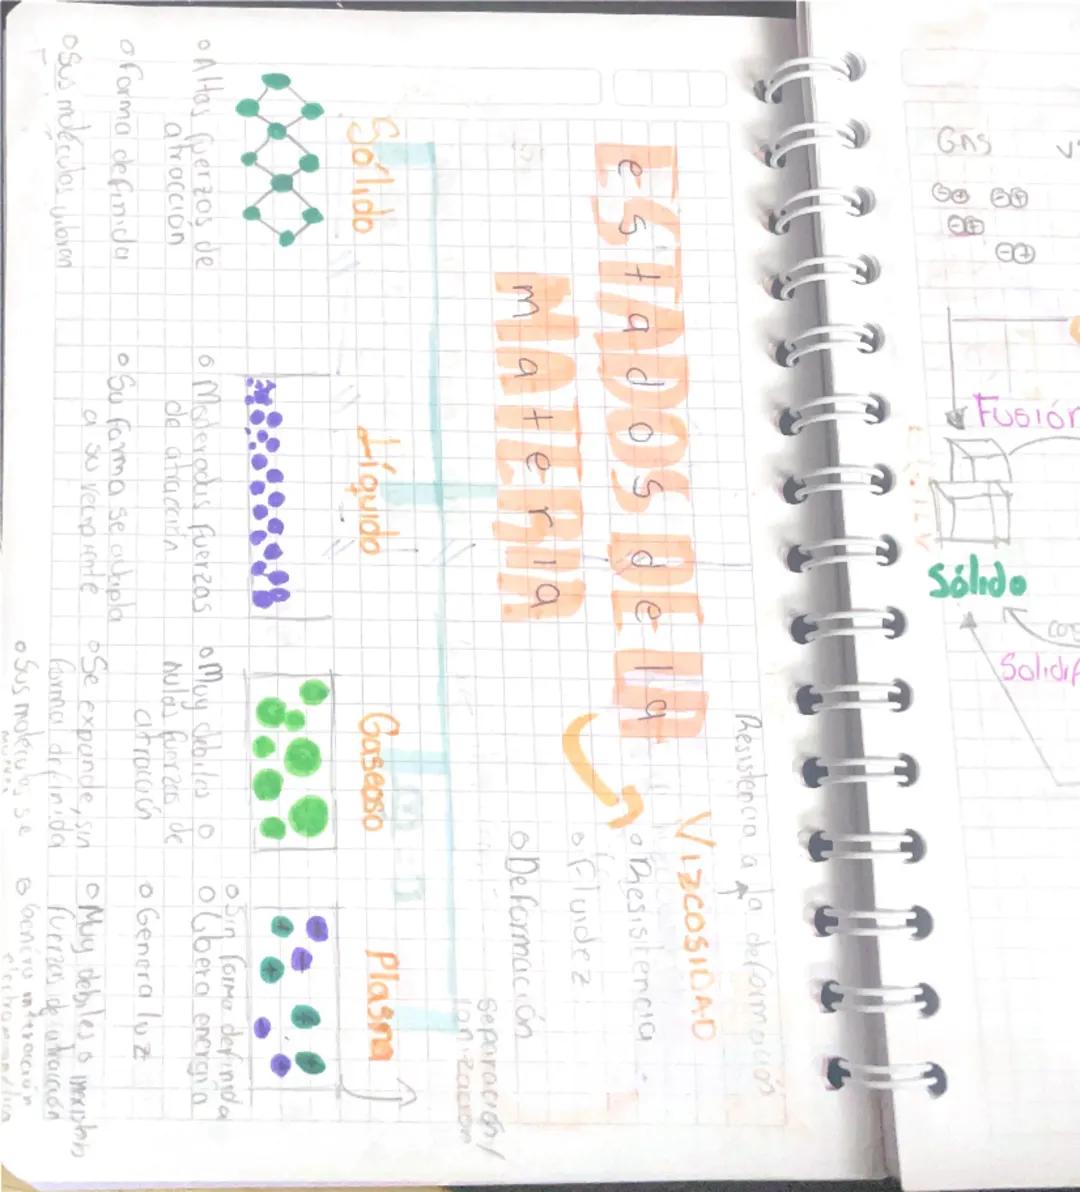 Estados de la
materia
Resistencia a la deformación
VIZCOSIDAD
o Resisitencia
o Fluidez
o Deformación
separación/
Ionización
Sólido
o Altas fuerzas de
atracción
o Forma definida
o Sus moléculas vibran
Líquido
o Moderadas fuerzas
de atracción
o Su forma se
a su
Gaseoso
o Muy debiles o
nulas fuerzas de
atracción
o Se expande, sin
forma definida
o Sus moléculas se
mueven
Plasma
o Sin forma definida
o Libera energía
o Genera luz
o Muy debiles o
fuerzas de atracción
o interacción
Gas
Fusión
Sólido